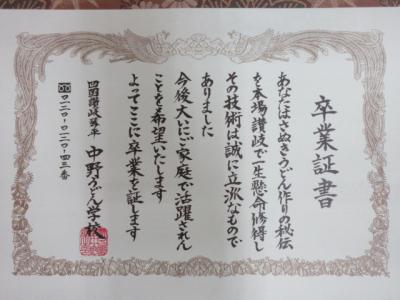 卒業証書
あなたはさぬきうどん作りの秘伝
を本場讃岐で一生懸命修得し
その技術は誠に立派なもので
ありました
今後大いにご家庭で活躍されん
ことを希望いたします
よってここに卒業を証します
四国讃岐琴平
中野うどん学校
〇一二〇-〇一二〇-四三番